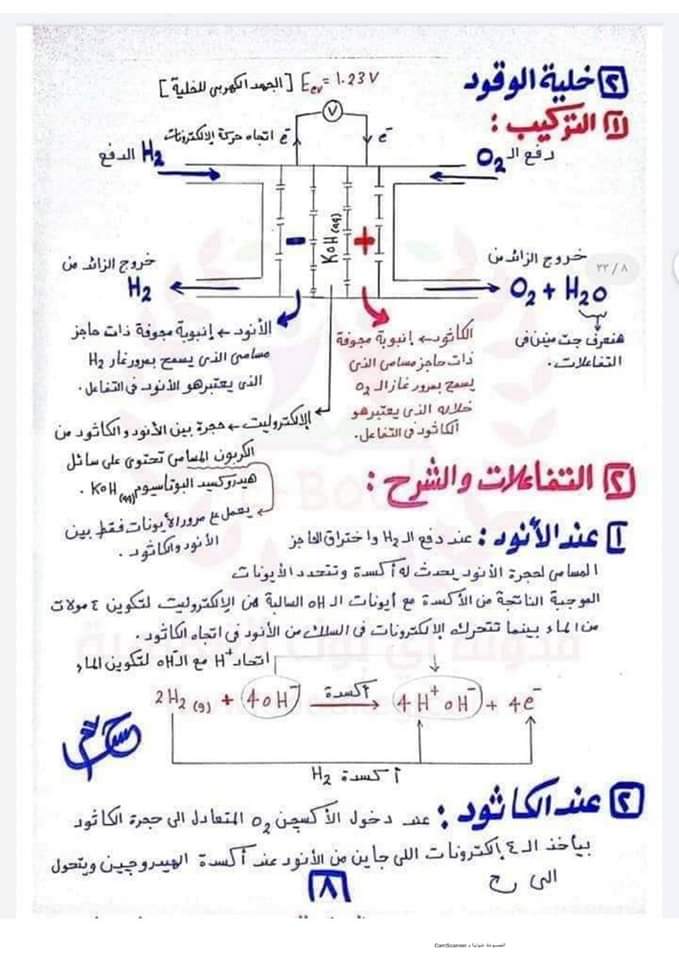 ٢ خلية الوقود
[الجهد الكهربي للخلية] Ecell = 1.23 V
١ التركيب :
V
اتجاه حركة الإلكترونات e⁻
e⁻
الدفع H₂
دفع الـ O₂
-
KOH(aq)
+
خروج الزائد من H₂
خروج الزائد من O₂ + H₂O
٨ / ٣٣
هنعرف جت منين فى التفاعلات .
الأنود ← إنبوبة مجوفة ذات حاجز
مسامى الذى يسمح بمرور غاز H₂
الذى يعتبر هو الأنود فى التفاعل .
الكاثود ← إنبوبة مجوفة
ذات حاجز مسامى الذى
يسمح بمرور غاز الـ O₂
خلاله الذى يعتبر هو
الكاثود فى التفاعل .
الإلكتروليت ← حجرة بين الأنود والكاثود من
الكربون المسامى تحتوى على سائل
هيدروكسيد البوتاسيوم KOH(aq) .
يعمل ع مرور الأيونات فقط بين
الأنود والكاثود .
٢ التفاعلات والشرح :
١ عند الأنود : عند دفع الـ H₂ واختراق الحاجز
المسامى لحجرة الأنود يحدث له أكسدة وتتحد الأيونات
الموجبة الناتجة من الأكسدة مع أيونات الـ OH السالبة من الإلكتروليت لتكوين ٤ مولات
من الماء بينما تتحرك الإلكترونات فى السلك من الأنود فى اتجاه الكاثود .
اتحاد H⁺ مع الـ OH⁻ لتكوين الماء
2H₂(g) + 4OH⁻ أكسدة → 4H⁺ OH⁻ + 4e⁻
أكسدة H₂
٢ عند الكاثود : عند دخول الأكسجين O₂ المتعادل الى حجرة الكاثود
بياخد الـ ٤ إلكترونات اللى جاين من الأنود عند أكسدة الهيدروجين ويتحول
الى
٨
CamScanner